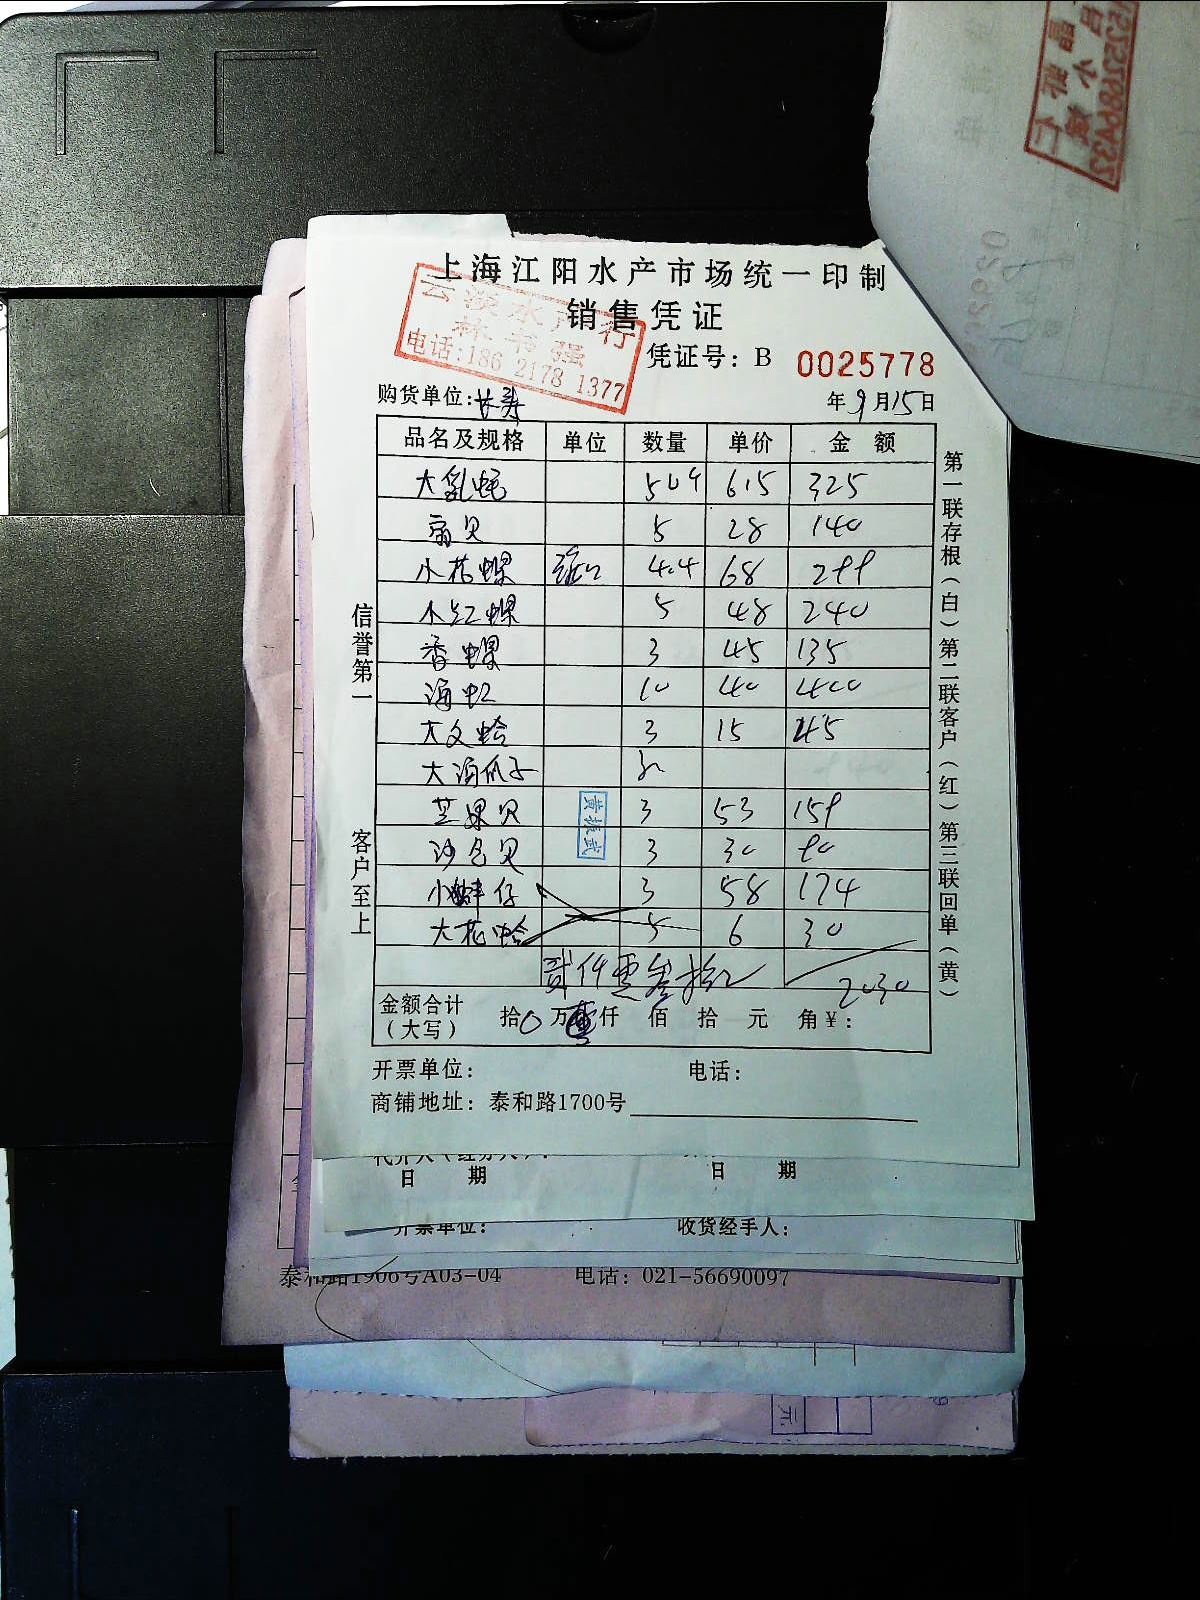 上海江阳水产市场统一印制
销售凭证
云淡水产行
林书强
电话:186 2178 1377
凭证号: B 0025778
购货单位:长寿
年9月15日
品名及规格 单位 数量 单价 金额
大乳蚝 615 325
扇贝 5 28 140
小花螺 4.4 68 299
小红螺 5 48 240
香螺 3 45 135
海虹 10 40 400
大文蛤 3 15 45
大海瓜子
芒果贝 3 53 159
沙包贝 3 30 90
小蚌仔 3 58 174
大花蛤 5 6 30
贰仟零叁拾 2030
金额合计
(大写) 拾0万 仟 佰 拾 元 角¥:
黄振武
信誉第一
客户至上
第一联存根(白)第二联客户(红)第三联回单(黄)
开票单位: 电话:
商铺地址: 泰和路1700号
日 期 日 期
开票单位: 收货经手人:
泰和路1906号A03-04 电话: 021-56690097
元